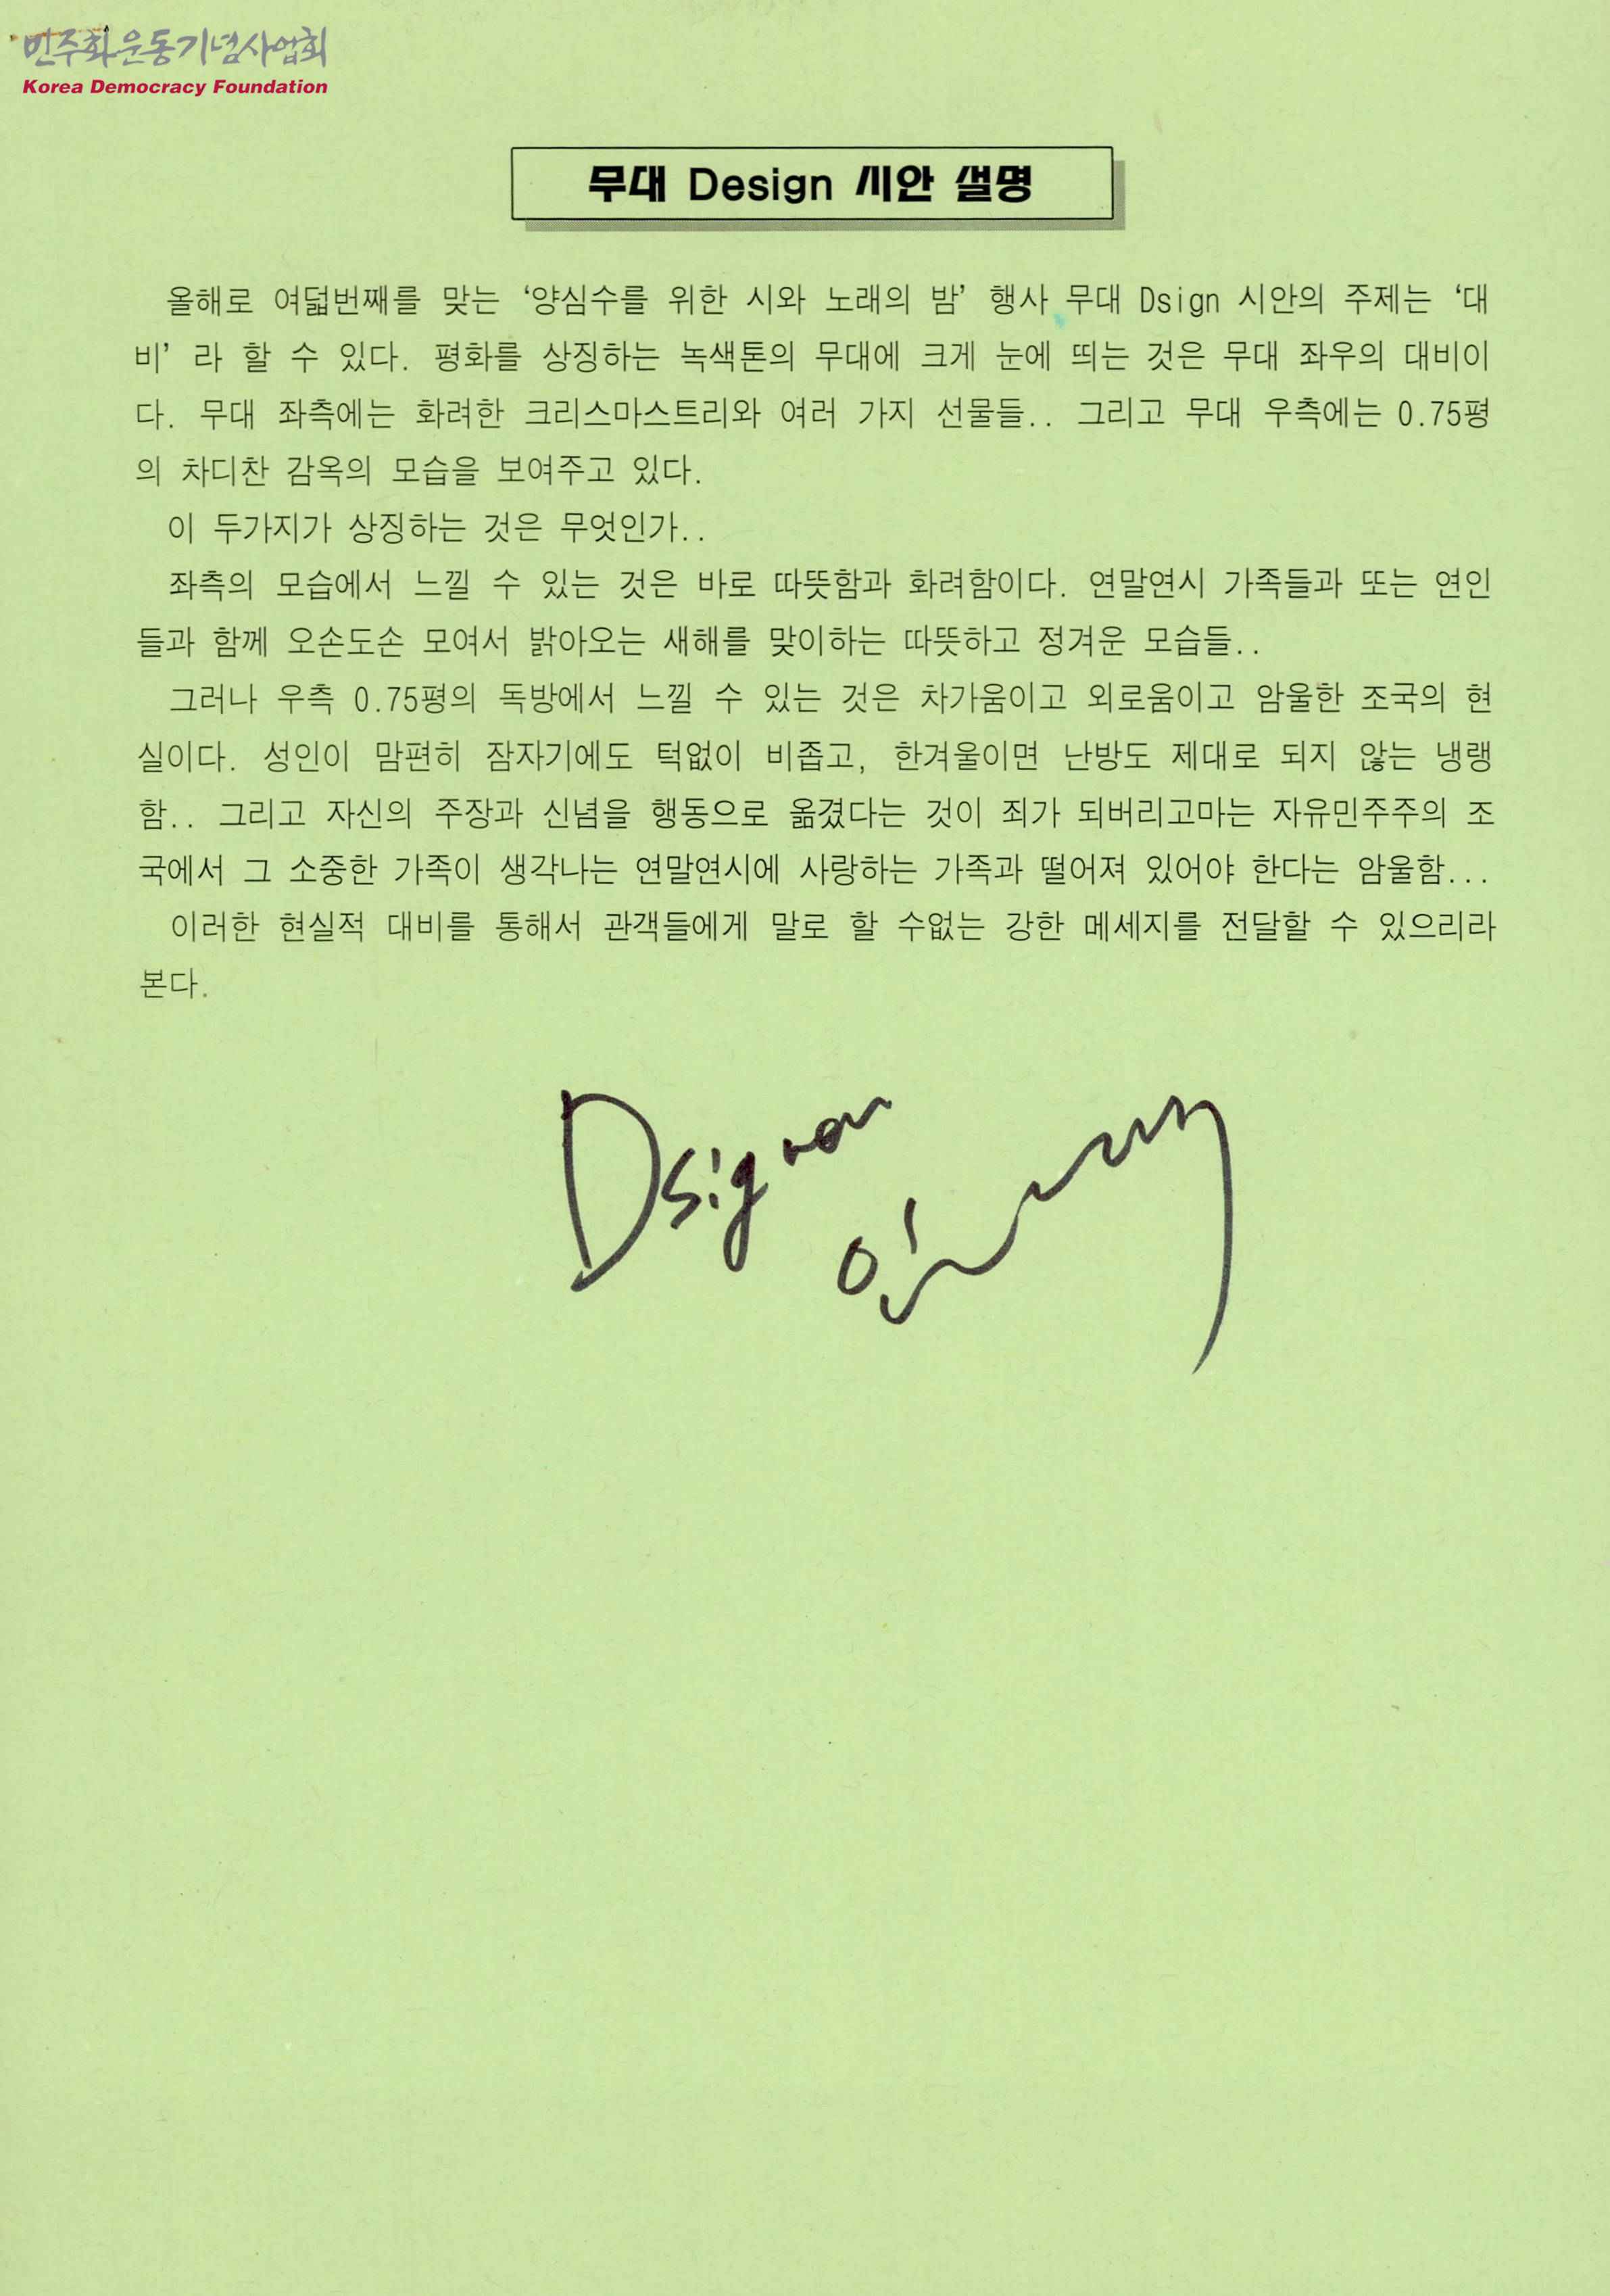 민주화운동기념사업회
Korea Democracy Foundation
무대 Design 시안 설명
올해로 여덟번째를 맞는 ‘양심수를 위한 시와 노래의 밤’ 행사 무대 Dsign 시안의 주제는 ‘대
비’ 라 할 수 있다. 평화를 상징하는 녹색톤의 무대에 크게 눈에 띄는 것은 무대 좌우의 대비이
다. 무대 좌측에는 화려한 크리스마스트리와 여러 가지 선물들.. 그리고 무대 우측에는 0.75평
의 차디찬 감옥의 모습을 보여주고 있다.
이 두가지가 상징하는 것은 무엇인가..
좌측의 모습에서 느낄 수 있는 것은 바로 따뜻함과 화려함이다. 연말연시 가족들과 또는 연인
들과 함께 오손도손 모여서 밝아오는 새해를 맞이하는 따뜻하고 정겨운 모습들..
그러나 우측 0.75평의 독방에서 느낄 수 있는 것은 차가움이고 외로움이고 암울한 조국의 현
실이다. 성인이 맘편히 잠자기에도 턱없이 비좁고, 한겨울이면 난방도 제대로 되지 않는 냉랭
함.. 그리고 자신의 주장과 신념을 행동으로 옮겼다는 것이 죄가 되버리고마는 자유민주주의 조
국에서 그 소중한 가족이 생각나는 연말연시에 사랑하는 가족과 떨어져 있어야 한다는 암울함...
이러한 현실적 대비를 통해서 관객들에게 말로 할 수없는 강한 메세지를 전달할 수 있으리라
본다.